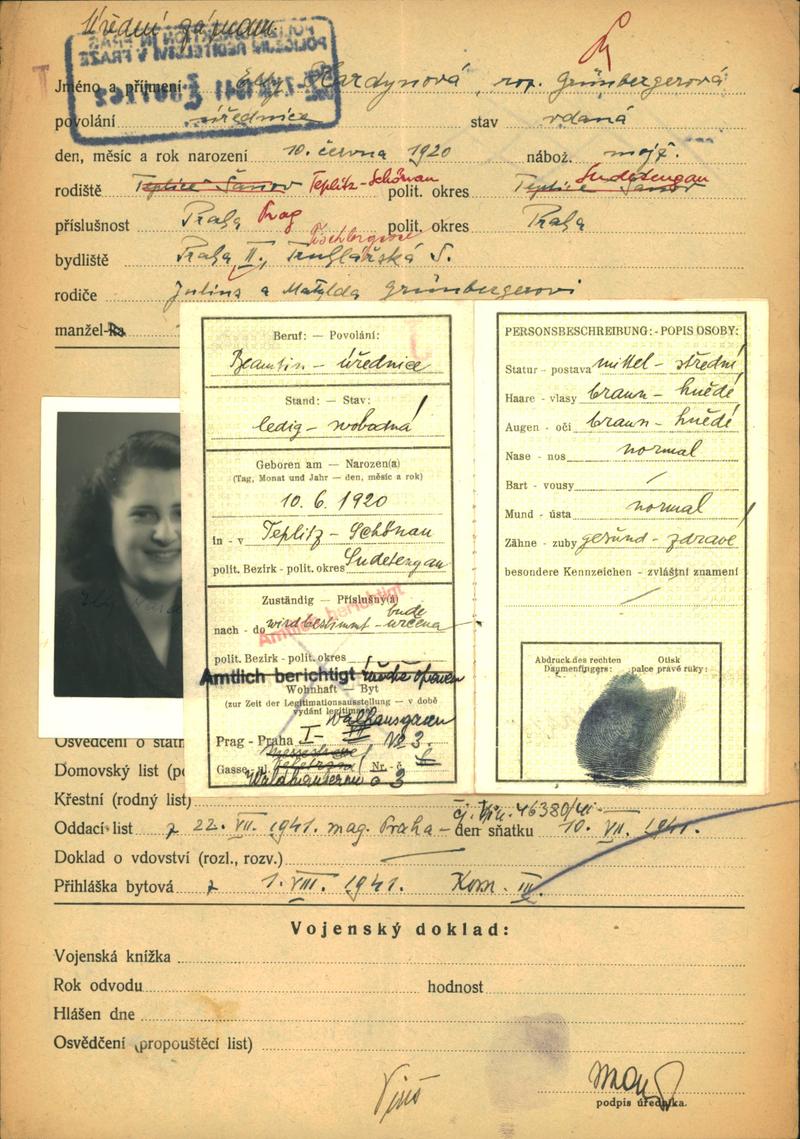 Úřední záznam.
POLICEJNÍ ŘEDITELSTVÍ V PRAZE
Jméno a příjmení Elly Hardynová, roz. Grünbergerová
povolání úřednice stav vdaná
den, měsíc a rok narození 10. června 1920 nábož. mojž.
rodiště Teplice Šanov Teplitz-Schönau polit. okres Teplice Šanov Sudetengau
příslušnost Praha Prag polit. okres Praha
bydliště Praha II., Truhlářská 5. Tischlergasse
rodiče Julius a Matylda Grünbergerovi
manžel-ka
Beruf: — Povolání:
Beamtin - úřednice
Stand: — Stav:
ledig - svobodná
Geboren am — Narozen(a)
(Tag, Monat und Jahr — den, měsíc a rok)
10. 6. 1920
in - v Teplitz - Schönau
polit. Bezirk - polit. okres Sudetengau
Zuständig — Příslušný(á)
Amtlich berichtigt
nach - do wird bestimmt - bude určena
polit. Bezirk - polit. okres
Amtlich berichtigt úředně opraveno
Wohnhaft — Byt
(zur Zeit der Legitimationsausstellung — v době
vydání legitimace)
Prag - Praha I - VII Nr 3.
Gasse - ul. Nr. - č. 6
3
PERSONSBESCHREIBUNG: - POPIS OSOBY:
Statur - postava mittel - střední
Haare - vlasy braun - hnědé
Augen - oči braun - hnědé
Nase - nos normal
Bart - vousy /
Mund - ústa normal
Zähne - zuby gesund - zdravé
besondere Kennzeichen - zvláštní znamení
Abdruck des rechten Daumenfingers: Otisk palce pravé ruky:
Osvědčení o státn
Domovský list (po
Křestní (rodný list)
čj. 46380/41
Oddací list z 22. VII. 1941. mag. Praha - den sňatku 10. VII. 1941.
Doklad o vdovství (rozl., rozv.)
Přihláška bytová z 1. VIII. 1941. Kom. III.
Vojenský doklad:
Vojenská knížka
Rok odvodu hodnost
Hlášen dne
Osvědčení (propouštěcí list)
podpis úředníka.